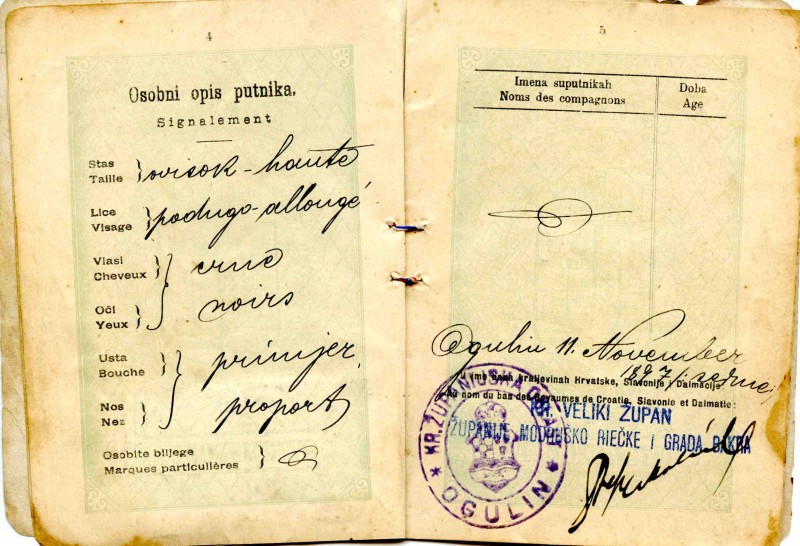 4
Osobni opis putnika.
Signalement
Stas
Taille
visok - haute
Lice
Visage
podugo - allongé
Vlasi
Cheveux
crne
Oči
Yeux
noirs
Usta
Bouche
primjer,
Nos
Nez
proport
Osobite biljege
Marques particulières
5
Imena suputnikah
Noms des compagnons
Doba
Age
Ogulin 11. November
1897
U ime bana kraljevinah Hrvatske, Slavonije i Dalmacije:
Au nom du ban des Royaumes de Croatie, Slavonie et Dalmatie:
KR. VELIKI ŽUPAN
ŽUPANIJE MODRUŠKO RIEČKE I GRADA BAKRA
KR. ŽUPANIJSKA
* OGULIN *